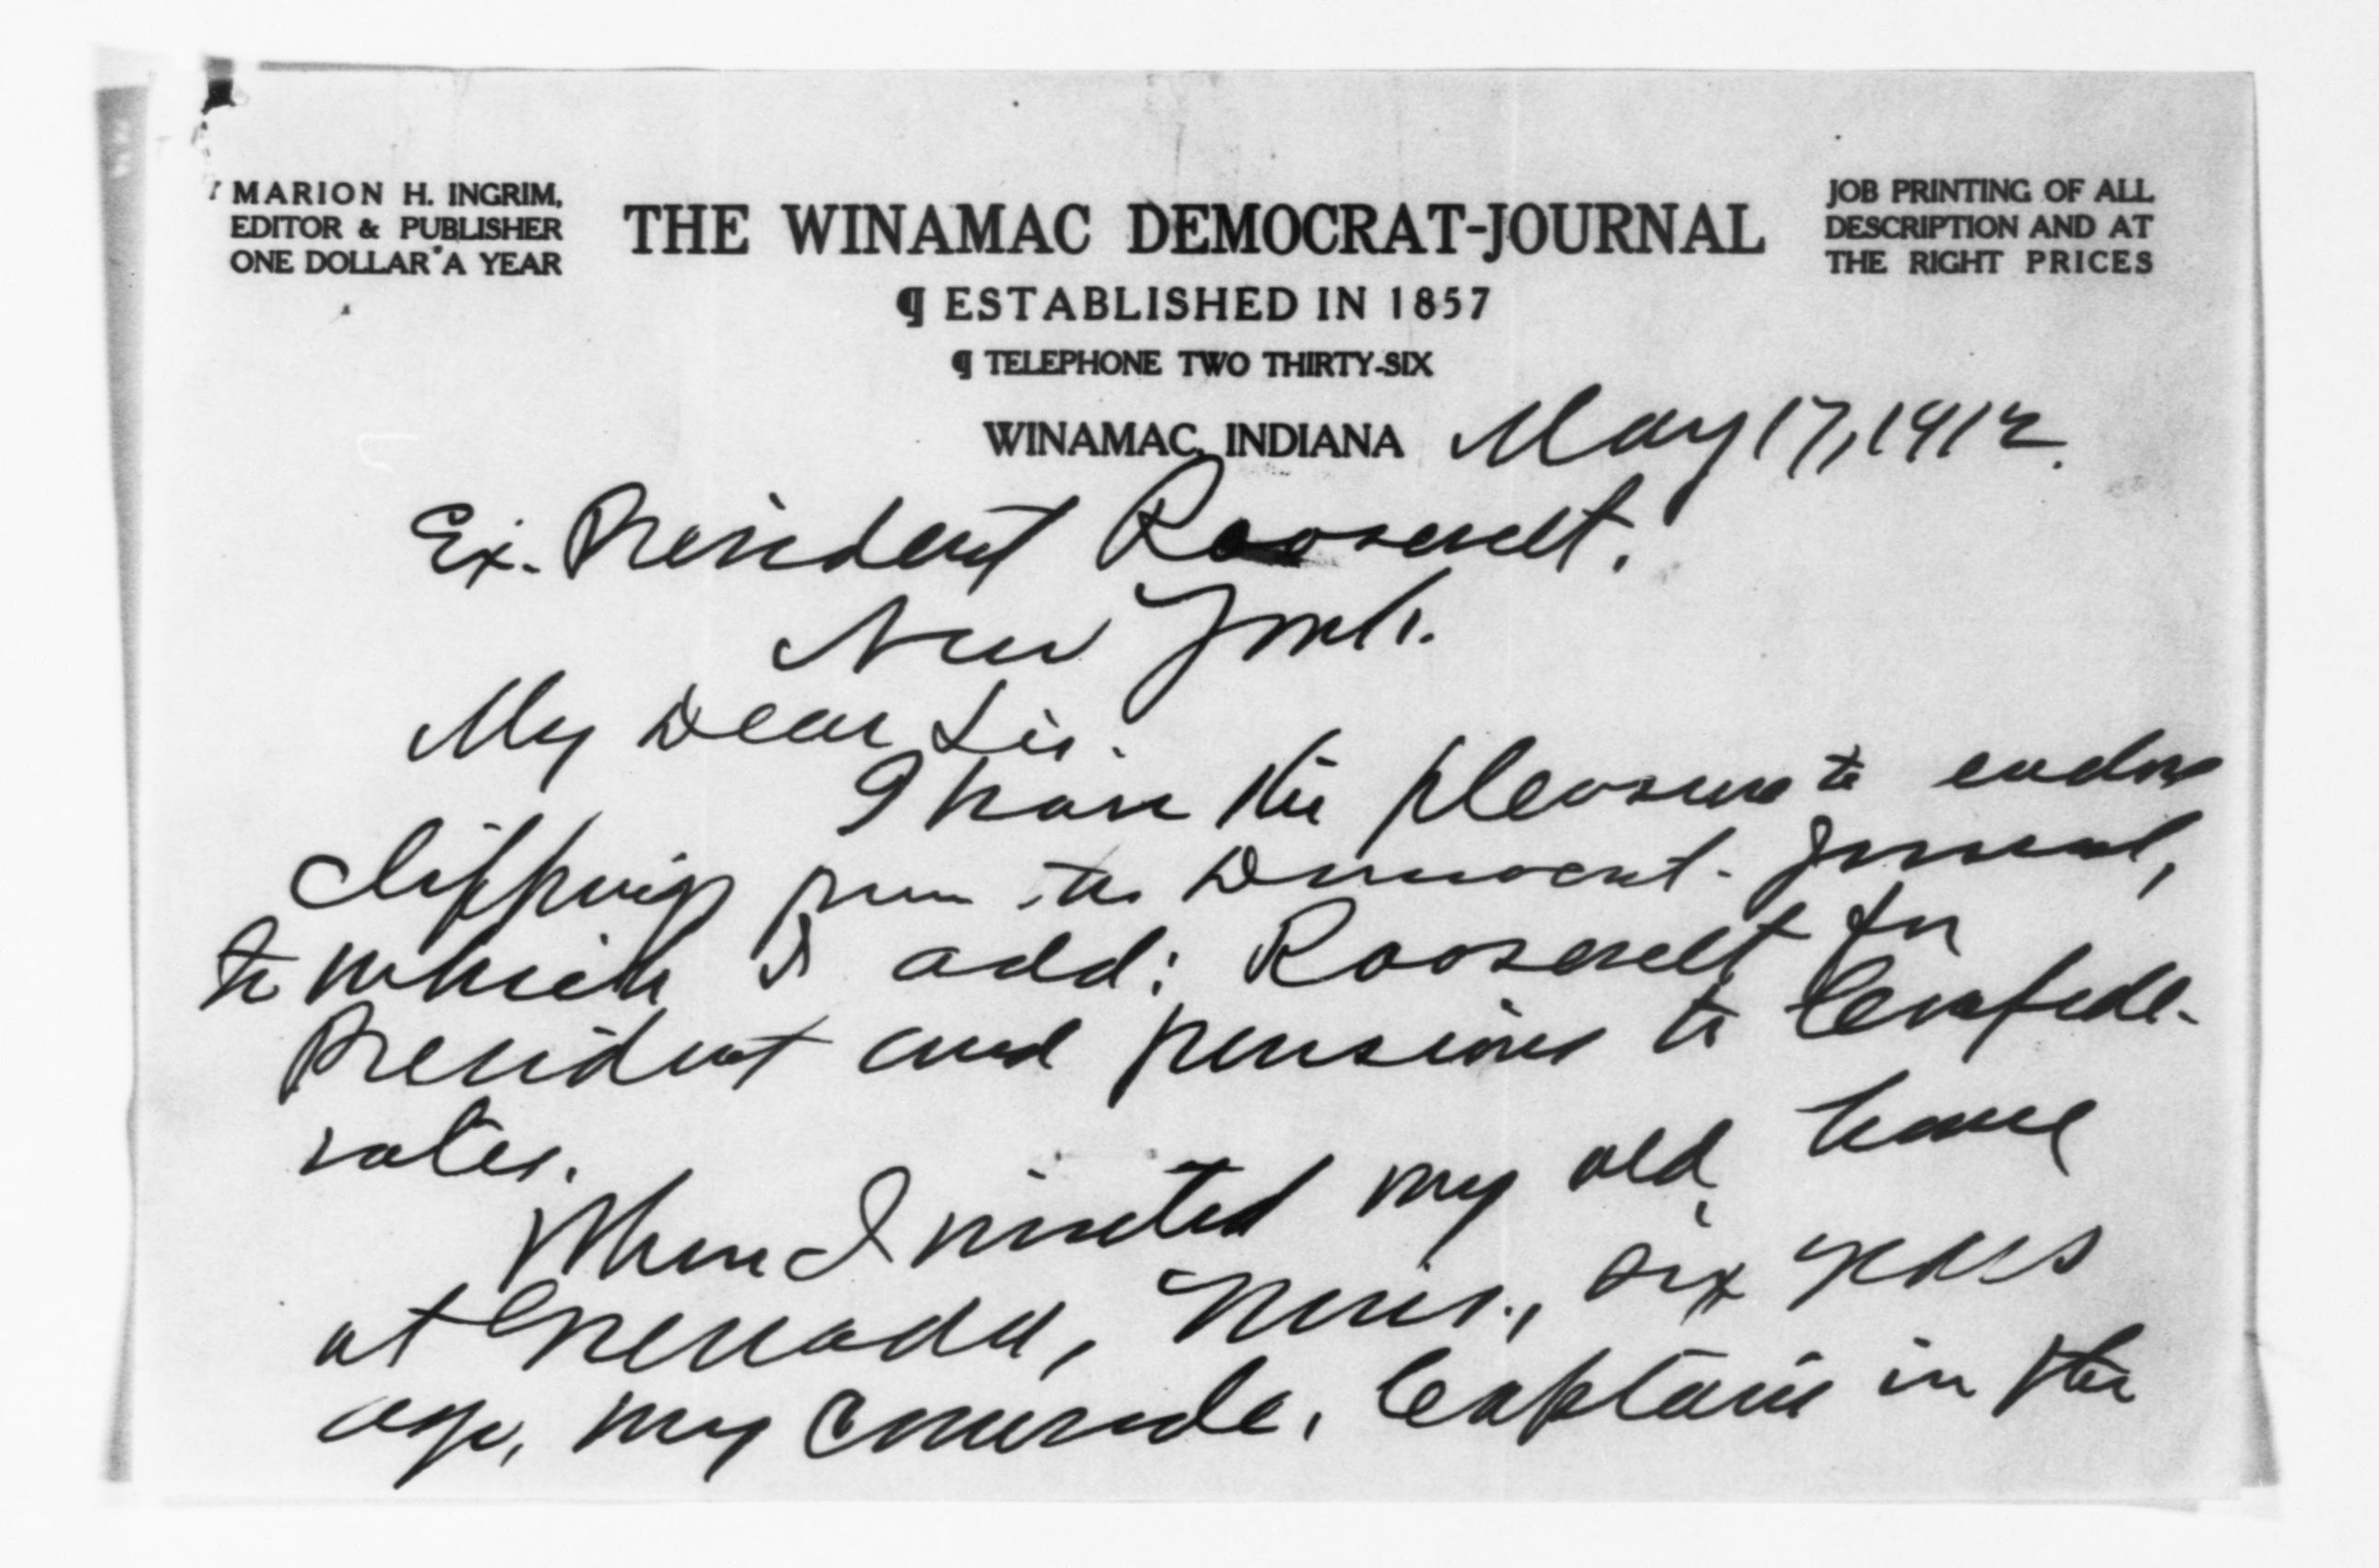 MARION H. INGRIM,
EDITOR & PUBLISHER
ONE DOLLAR A YEAR
THE WINAMAC DEMOCRAT-JOURNAL
¶ ESTABLISHED IN 1857
¶ TELEPHONE TWO THIRTY-SIX
JOB PRINTING OF ALL
DESCRIPTION AND AT
THE RIGHT PRICES
WINAMAC, INDIANA May 17, 1912.
Ex. President Roosevelt.
New York.
My Dear Sir:
I have the pleasure to
clipping from the Democrat-Journal,
to which I add: Roosevelt for
President and pensions to Confede-
rates.
When I visited my old home
at Grenada, Miss., six years
ago, my comrade, Captain in the